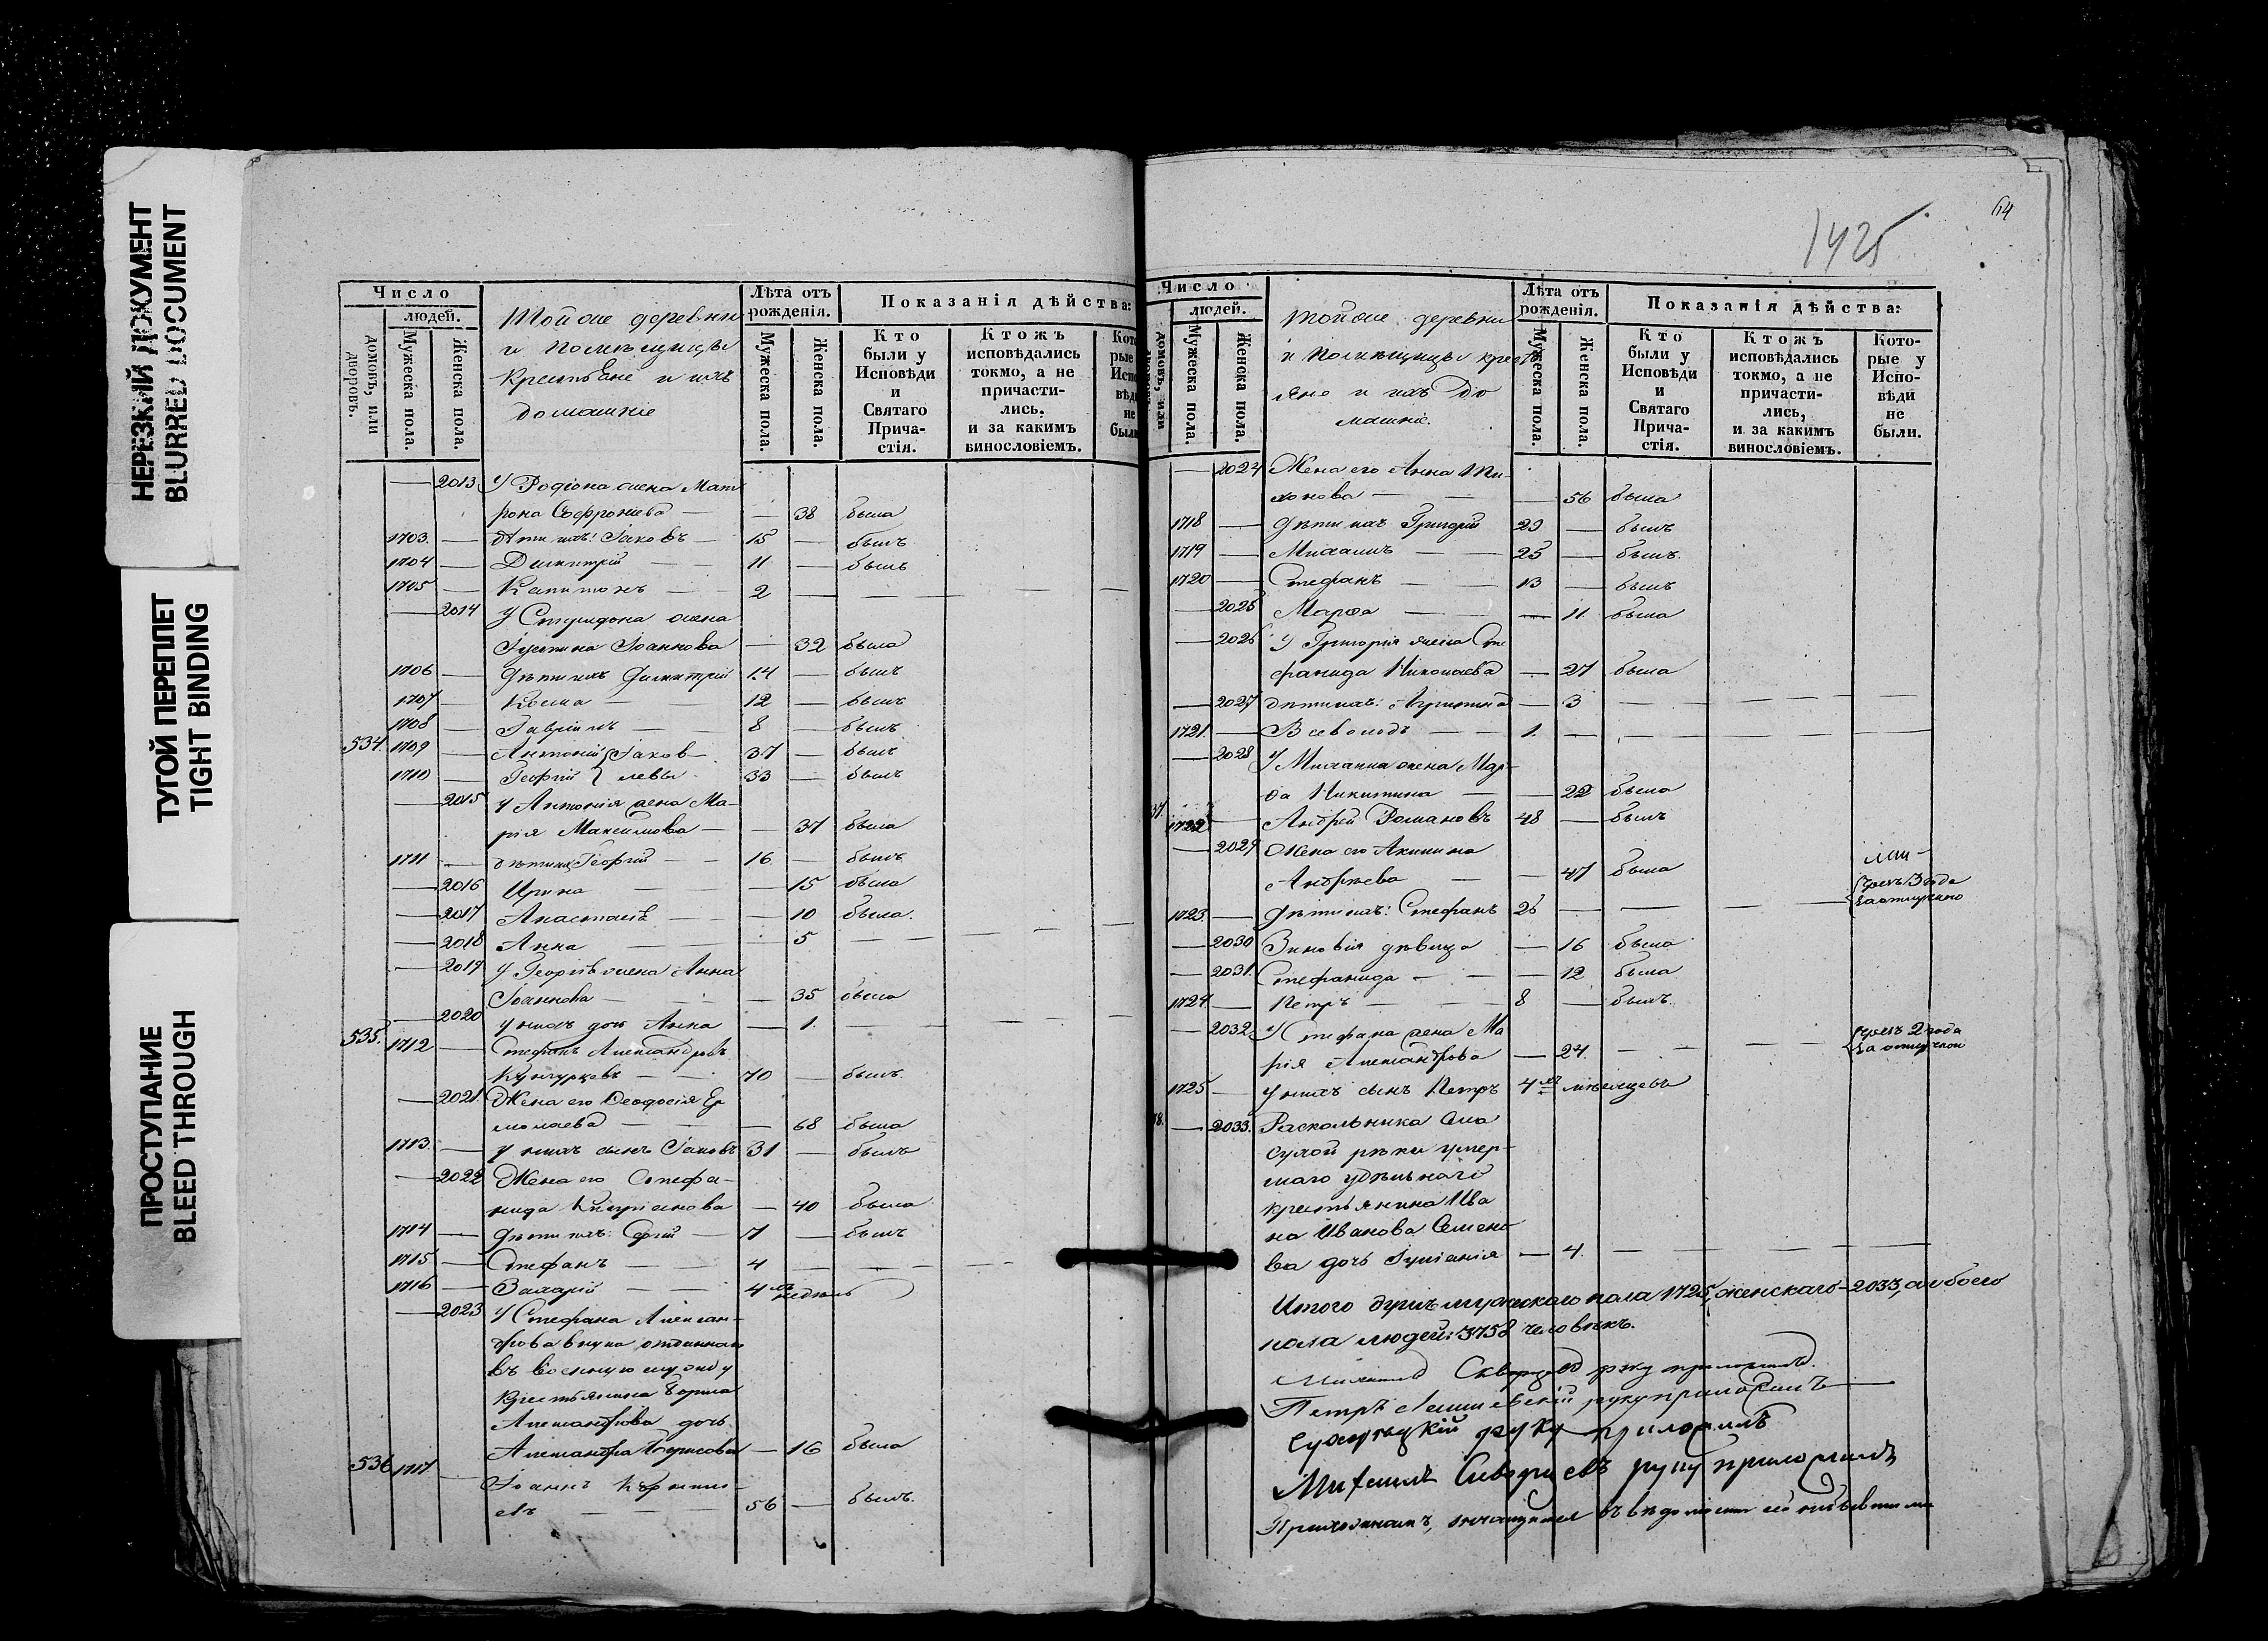 НЕРЕЗКИЙ ДОКУМЕНТ
BLURRED DOCUMENT
ТУГОЙ ПЕРЕПЛЕТ
TIGHT BINDING
ПРОСТУПАНИЕ
BLEED THROUGH
Число
людей.
домовъ, или дворовъ.
Мужеска пола.
Женска пола.
Тойже деревни
и помѣщицы
крестьяне и ихъ
домашніе
Лѣта отъ рожденія.
Мужеска пола.
Женска пола.
Показанія дѣйства:
Кто были у Исповѣди и Святаго Прича-стія.
Ктожъ исповѣдались токмо, а не причасти-лись, и за какимъ винословіемъ.
2013 У Родіона жена Мат
рона Софроніева — — 38 была
1703. — Дѣти ихъ: Іаковъ — 15 — былъ
1704 — Димитрій — 11 — былъ
1705 — Капитонъ — 2 —
2014 У Спиридона жена
Іустина Іоаннова — 32 была
1706 — Дѣти ихъ Димитрій 14 — былъ
1707 — Косма — 12 — былъ
1708 — Гавріилъ — 8 — былъ
534. 1709 — Антоній Іаков- 37 — былъ
1710 — Георгій левы 33 — былъ
2015 У Антонія жена Ма-
рія Максимова — — 37 была
1711 — дѣти ихъ Георгій — 16 — былъ
2016 Ирина — — 15 была
2017 Анастасія — — 10 была.
2018 Анна — — 5 —
2019 У Георгія жена Анна
Іоаннова — — 35 была
2020 у нихъ дочь Анна — 1. —
535. 1712 — Стефанъ Александровъ
— 70 — былъ.
2021. Жена его Ѳеодосія Ер
молаева — — 68 была
1713. — У нихъ сынъ Іаковъ 31 — былъ
2022 Жена его Стефа-
нида Кипріанова — 40 была
1714 — Дѣти ихъ: Сергій — 7 — былъ
1715 — Стефанъ — 4 —
1716 — Захарій — 4 недѣль
2023 У Стефана Алексан-
дрова внука отданнаго
въ военную службу
крестьянина Бориса
Александрова дочь
Александра Борисова — 16 была
536 1717 — Іоаннъ
евъ — 56 — былъ.
64
1425
Число
людей.
домовъ, или
Мужеска пола.
Женска пола.
Тойже деревни
и помѣщицы крест
яне и ихъ До
машніе.
Лѣта отъ рожденія.
Мужеска пола.
Женска пола.
Показанія дѣйства:
Кто были у Исповѣди и Святаго Прича-стія.
Ктожъ исповѣдались токмо, а не причасти-лись, и за какимъ винословіемъ.
Кото-рые у Испо-вѣди не были.
2024 Жена его Анна Ти-
хонова — — 56 была
1718 — Дѣти ихъ Григорій 29 — былъ
1719 — Михаилъ — 25 — былъ.
1720 — Стефанъ — 13 — былъ
2025 Марѳа — — 11. была
2026 У Григорія жена Сте
фанида Николаева — 27 была
2027 дѣти ихъ: — 3 —
1721. — Всеволодъ — 1. —
2028 У Михаила жена Мар-
ѳа Никитина — — 22 была
37. 1722 — Андрей Романовъ 48 — былъ
2029 Жена его Акилина
Андреева — — 47 была
1723. — Дѣти ихъ: Стефанъ 26 —
2030 Зиновія дѣвица — 16 была
2031. Стефанида — — 12 была
1724 — Петръ — 8 — былъ.
2032. У Стефана жена Ма
рія Александрова — 24. —
1725 — У нихъ сынъ Петръ 4 мѣсяцевъ
38. 2033. Раскольника
сухой рѣки умер-
шаго удѣльнаго
крестьянина Ива
на Иванова Семено
ва дочь Іуліанія — 4. —
Итого душъ мужескаго пола 1725, женскаго - 2033, а обоего
пола людей: 3758 человѣкъ.
руку приложилъ.
Петръ руку приложилъ
руку приложилъ
Михаилъ руку приложилъ